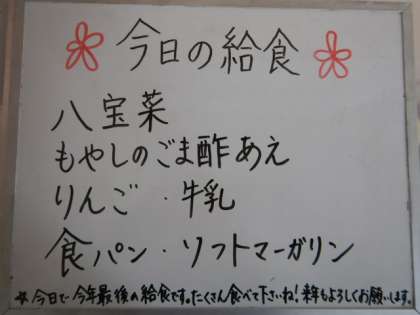 今日の給食
八宝菜
もやしのごま酢あえ
りんご・牛乳
食パン・ソフトマーガリン
*今日で今年最後の給食です。たくさん食べて下さいね!来年もよろしくお願いします。